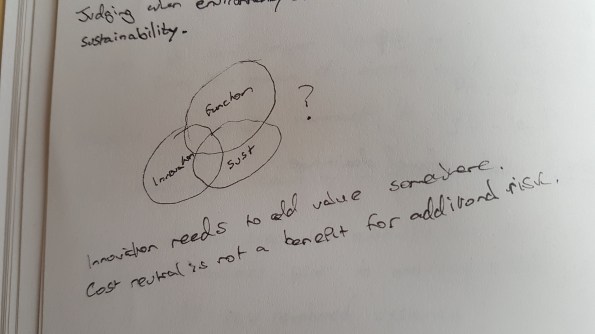 Judging when
sustainability.
Function
?
Innovation
Sust
Innovation needs to add value somewhere.
Cost neutral is not a benefit for additional risk.